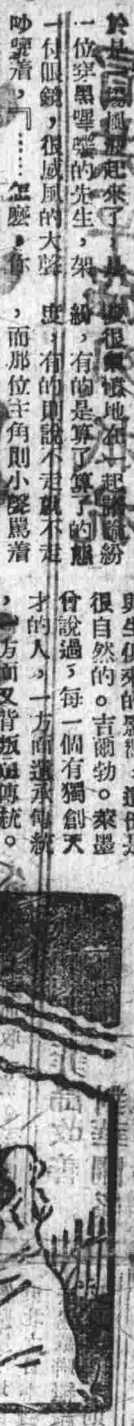 於是一場風波起來了，是
一位穿黑嗶嘰的先生，架
一付眼鏡，很威風的大聲
吵嚷着，『……怎麼，你
很氣憤地在一起議論紛
紛，有的是算了算了的態
度，有的則說不走就不走
，而那位主角則小聲罵着
很自然的。吉爾勃。萊墨
曾說過，每一個有獨創天
才的人，一方面遵承傳統
，一方面又背叛這傳統。